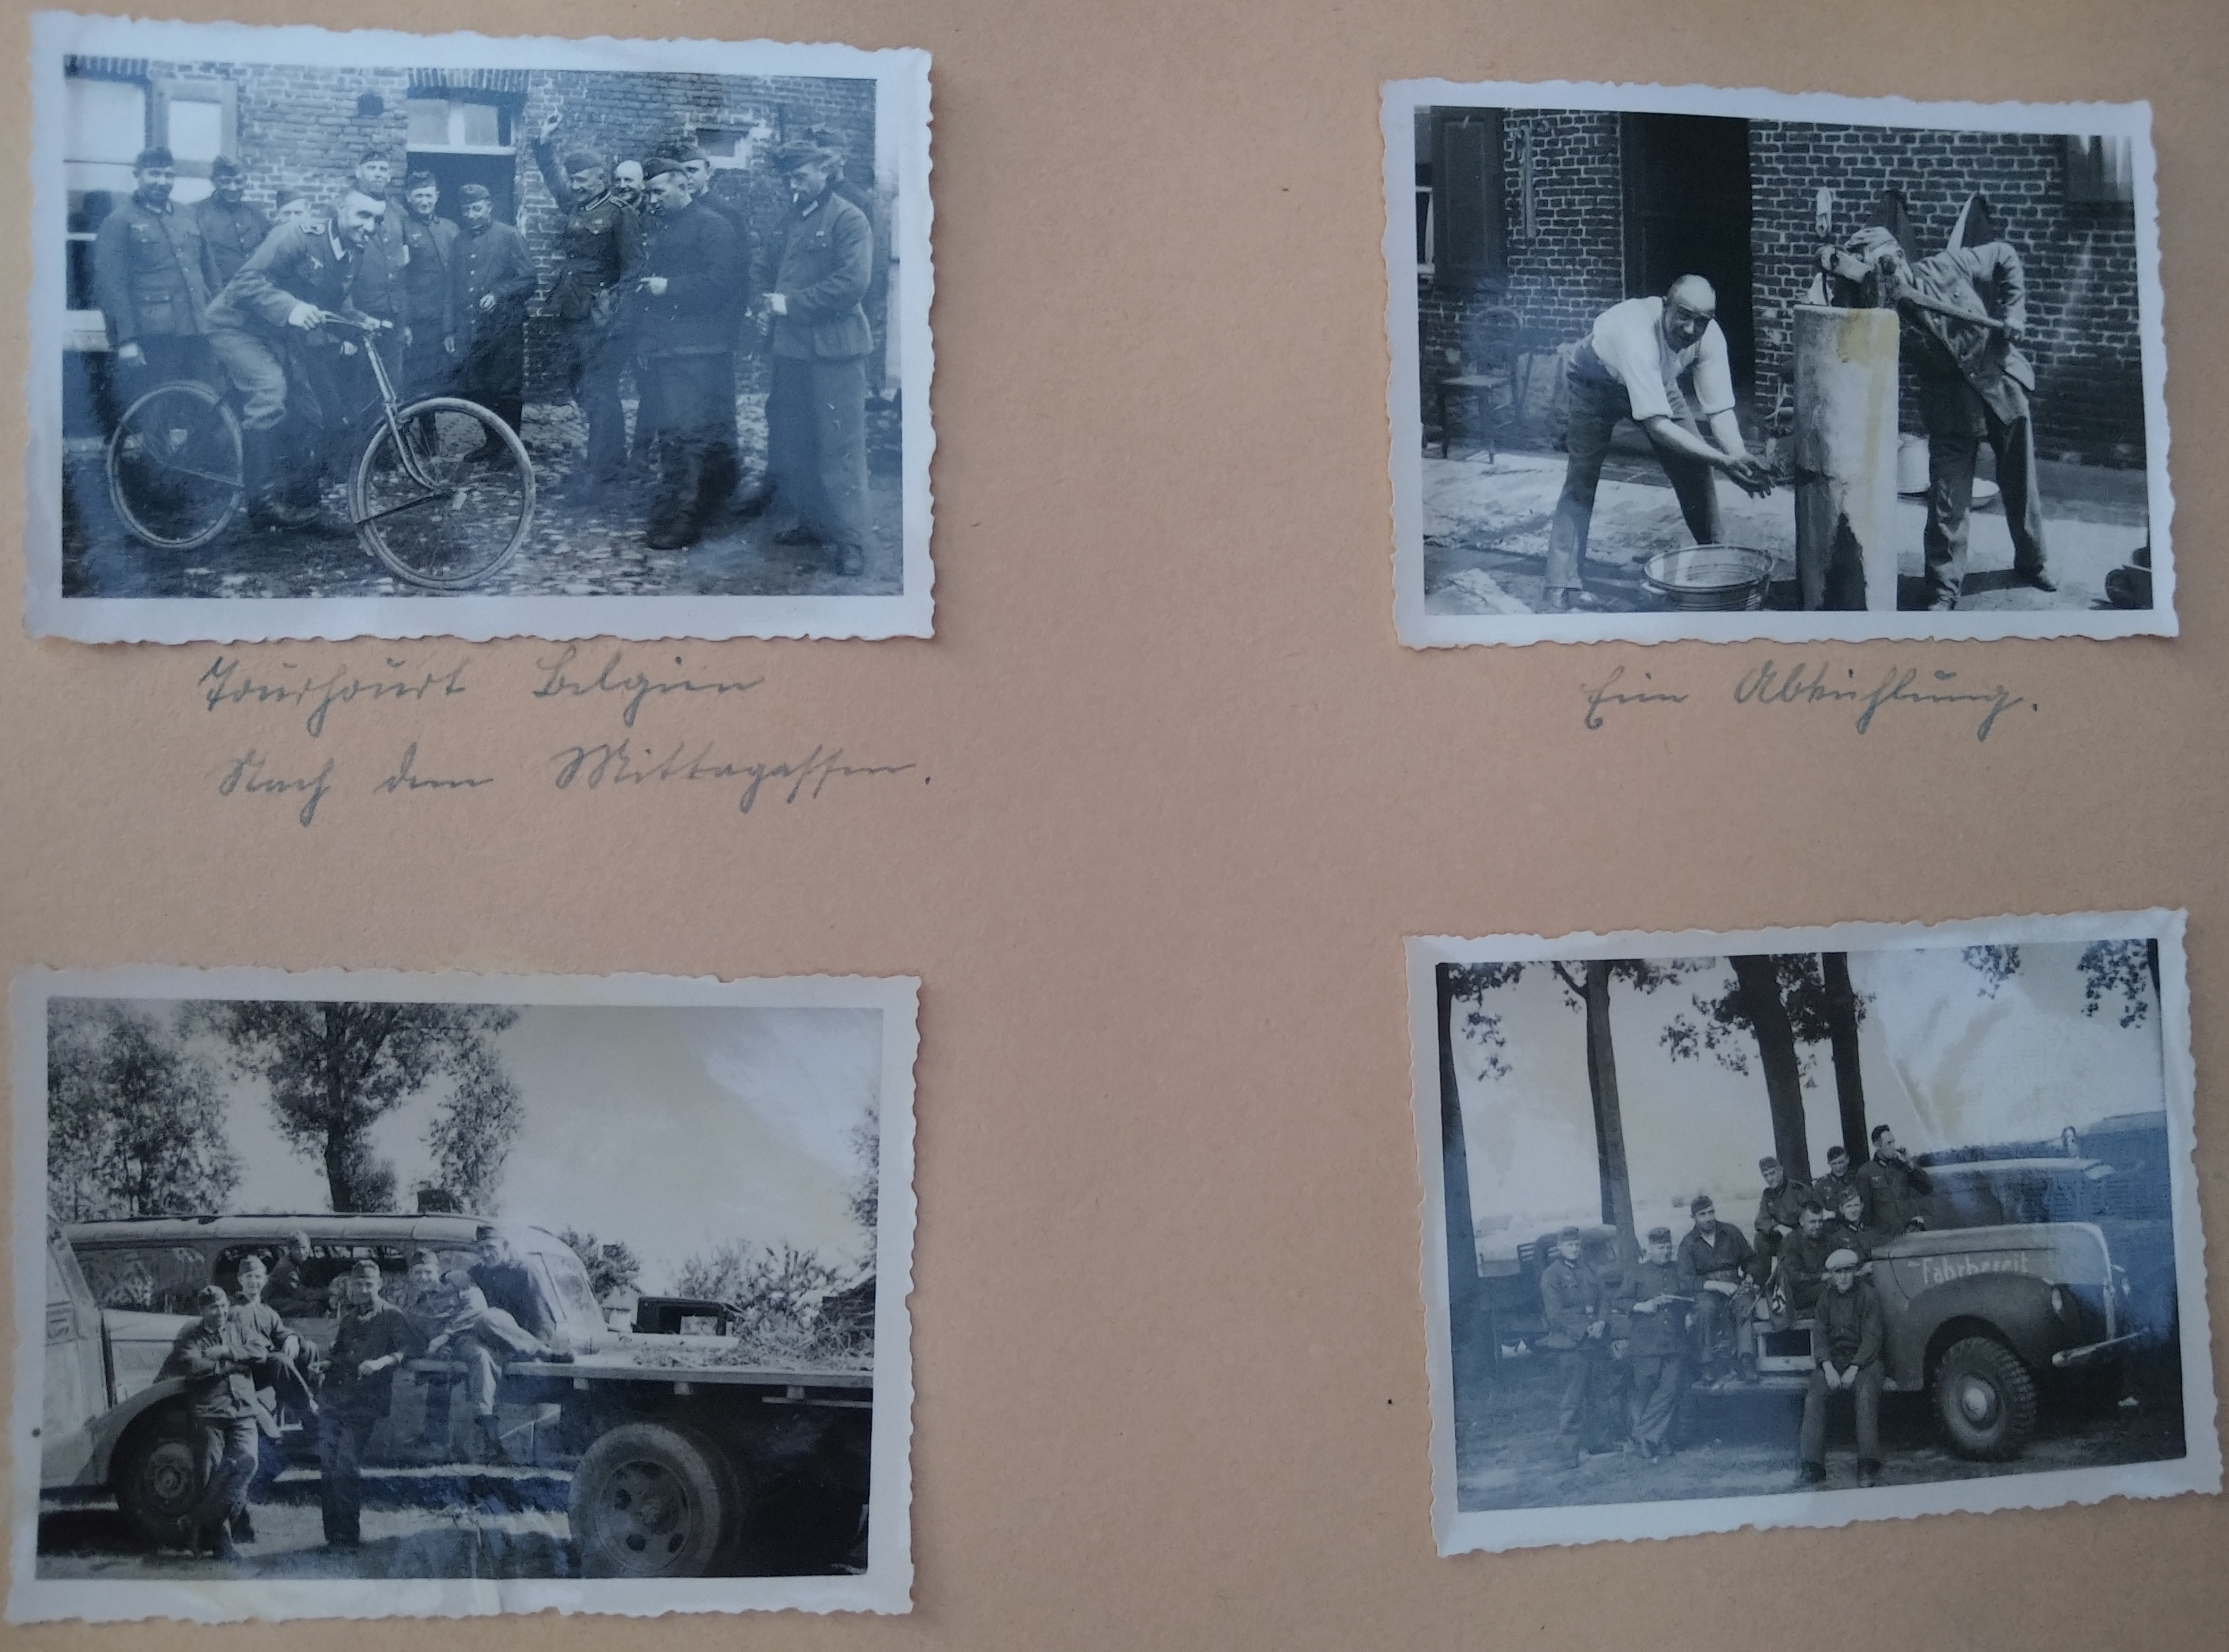 Tourhourt Belgien
Nach dem Mittagessen.
Eine Abkühlung.
Fahrbereit